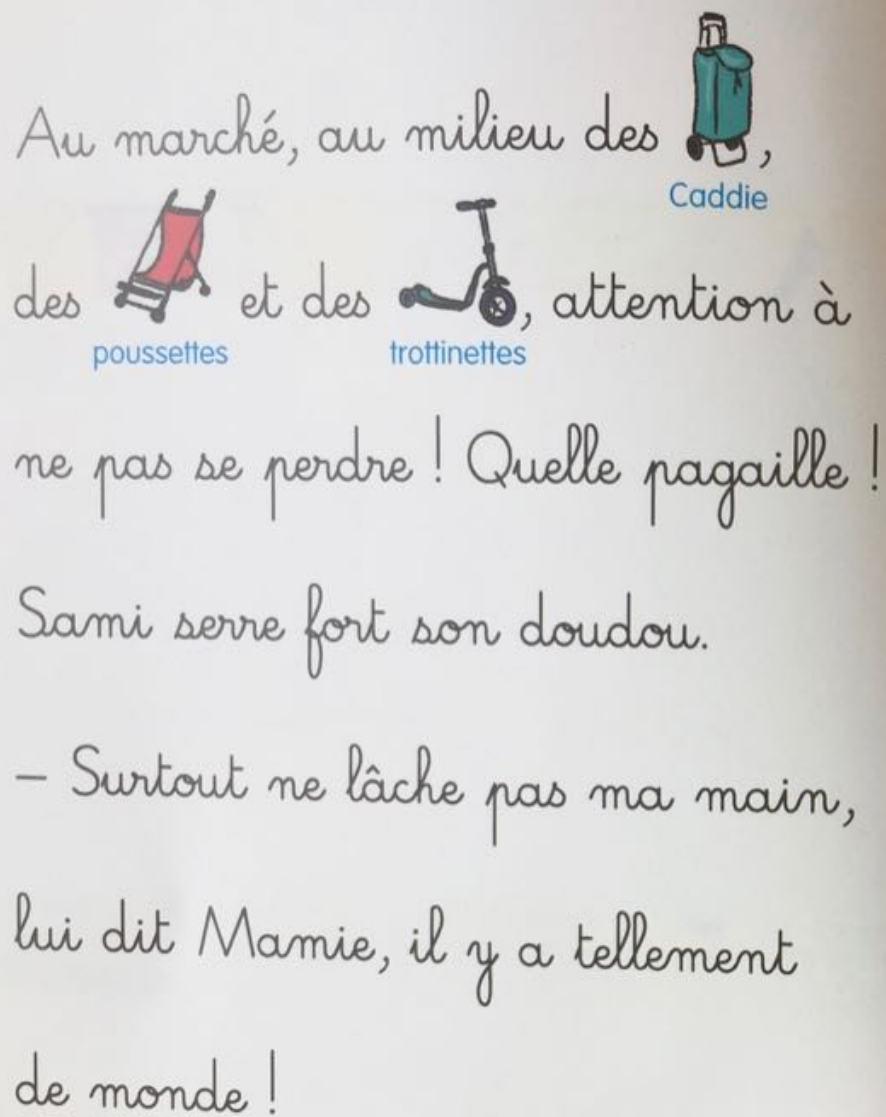 Au marché, au milieu des ,
Caddie
des et des , attention à
poussettes trottinettes
ne pas se perdre ! Quelle pagaille !
Sami serre fort son doudou.
– Surtout ne lâche pas ma main,
lui dit Mamie, il y a tellement
de monde !